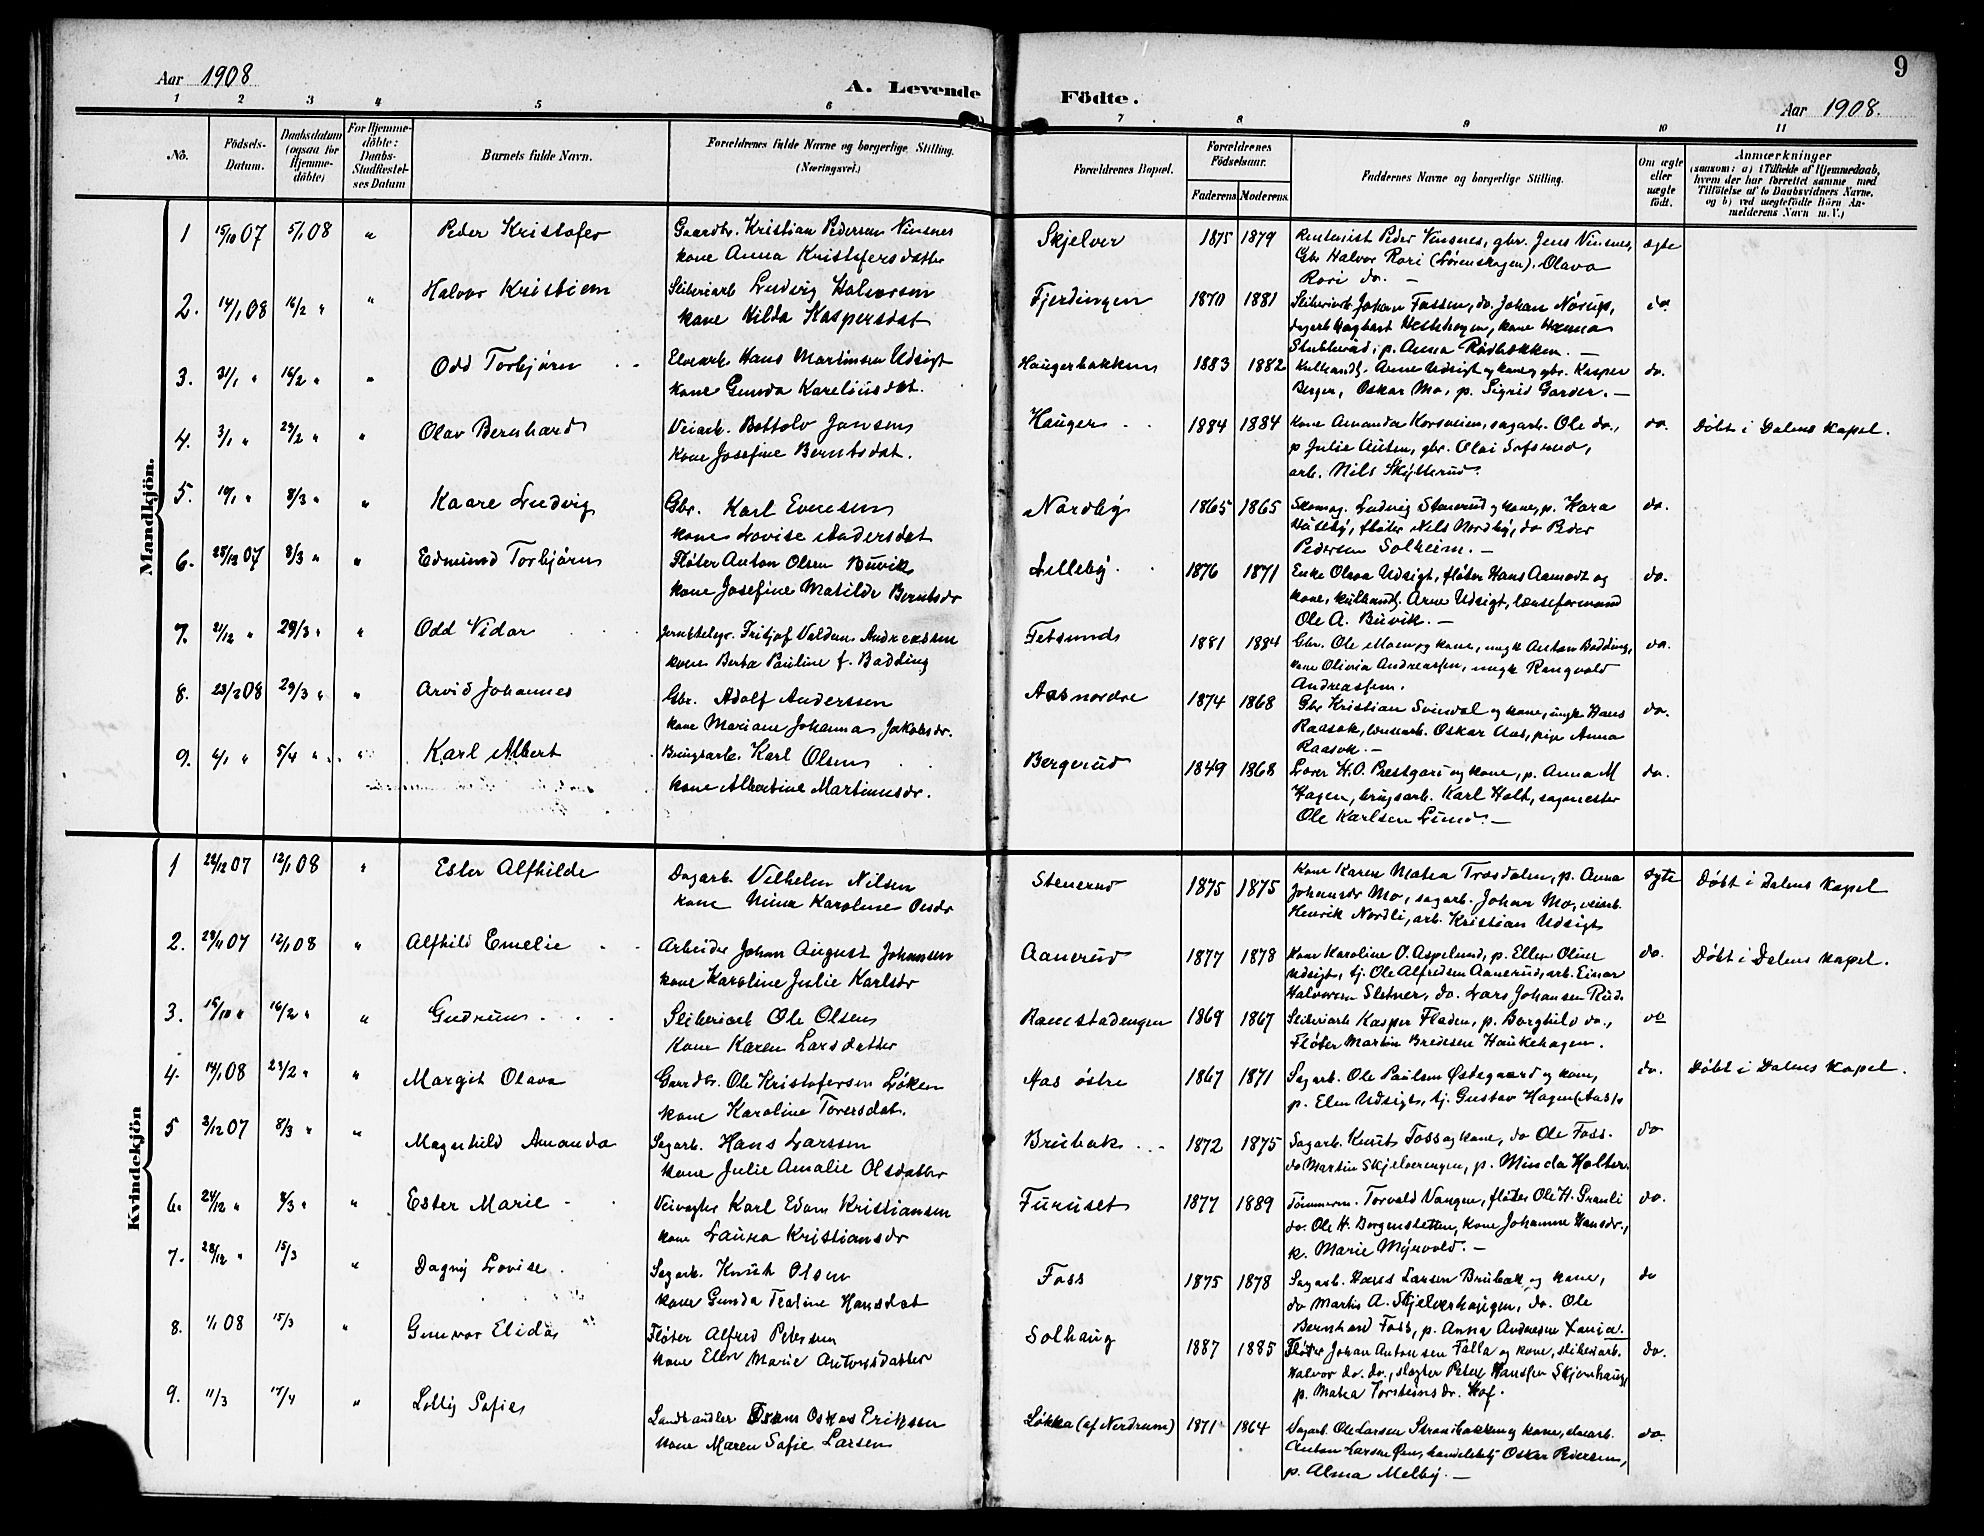 Aar 1908
A. Levende Födte.
9
Aar 1908.
1 2 3 4 5 6 7 8 9 10 11
No.
Födsels-Datum.
Daabsdatum (ogsaa for Hjemmedöbte)
For Hjemmedöbte: Daabs-Stadfæstelses Datum
Barnets fulde Navn.
Forældrenes fulde Navne og borgerlige Stilling. (Næringsvei.)
Forældrenes Bopæl.
Forældrenes Födselsaar.
Faderens Moderens
Faddernes Navne og borgerlige Stilling.
Om ægte eller uægte födt.
Anmærkninger
(saasom: a) i Tilfælde af Hjemmedaab, hvem der har forrettet samme med Tilföielse af to Daabsvidners Navne, og b) ved uægtefödte Börn Anmelderens Navn m. V.)
Mandkjön.
1 15/10 07 5/1 08 " Peder Kristofer Gaardbr. Kristian Pedersen Vinsnes Skjelver 1875 1879 Peder Vinsnes, gbr. Jens Vinsnes, ægte
kone Anna Kristofersdatter Gbr Halvor Rori (Lørenskogen). Olava
Rori do. —
2. 14/1 08 16/2 " " Halvor Kristian Sliberiarb Ludvig Halvorsen Fjerdingen 1870 1881 Sliberiarb. Johan Fossen, do. Johan Nörup, do.
kone Hilda Kaspersdat kone Hanna
p. Anna Rødbakken. —
3. 31/1 " 16/2 " " Odd Torbjörn Elvearb Hans Martinsen Udsigt Haugerbakken 1883 1882 Kulhandl. Arne Udsigt og kone, gbr. Kasper do.
kone Gunda Kareliusdat. Berger, Oskar Mo, p. Sigrid Garder. —
4. 3/1 " 23/2 " " Olav Bernhard Veiarb. Bottolv Jonsen Hauger 1884 1884 Kone Amanda Korsveien, sagarb. Ole do., do. Døbt i Dalens kapel.
kone Josefine Berntsdat. p Julie Auten, gbr. Olai
arb. Nils Skytterud.
5. 10/1 " 8/3 " " Kaare Ludvig Gbr. Karl Evensen Nordby 1865 1865 Skomag. Ludvig Stenerud og kone, p. Kara do.
kone Lovise Andersdat Huseby, fløter Nils Nordby, do Peder
Pedersen Solheim. —
6. 28/12 07 8/3 " " Edmund Torbjörn Fløter Anton Olsen Buvik Lilleby 1876 1871 Enke Olava Udsigt, fløter Hans Aamodt og do.
kone Josefine Matilde Berntsdr kone, kulhandl. Arne Udsigt, lænseformand
Ole A. Buvik. —
7. 21/12 " 29/3 " " Odd Vidar Fritjof Valdem. Andreassen Fetsund 1881 1884 Gbr. Ole Moen og kone, ungk Anton Bødding, do.
kone Berta Pauline f. Bødding kone Olivia Andreassen, ungk Rangvald
Andreassen.
8. 23/2 08 29/3 " " Arvid Johannes Gbr. Adolf Anderssen Aas nordre 1874 1868 Gbr Kristian Svindal og kone, ungk Hans do.
kone Mariane Johanna Jakobsdr. Raasok, lensearb. Oskar Aas, pige Anna
Raasok. —
9. 4/1 " 5/4 " " Karl Albert Brugsarb. Karl Olsen Bergerud 1849 1868 Lærer H. O. Prestgard og kone, p. Anna M do.
kone Albertine Martinusdr. Hagen, brugsarb. Karl Holt, sagmester
Ole Karlsen Lund. —
Kvindekjön
1 22/12 07 12/1 08 " Ester Alfhilde Dagarb. Vilhelm Nilsen Stenerud 1875 1875 Kone Karen Matea Trosdalen, p. Anna ægte Døbt i Dalens Kapel
kone Mina Karoline Olsdr Johansdr Mo, sagarb. Johan Mo, veiarb.
Henrik Nordli, arb. Kristian Udsigt
2. 28/11 07 12/1 08 " Alfhild Emelie Arbeider Johan August Johansen Aanerud 1877 1878 Kone Karoline O. Aspelund, p. Ellen Oline do. Døbt i Dalens kapel.
kone Karoline Julie Karlsdr Udsigt, tj. Ole Alfredsen Aanerud, arb. Einar
Halvorsen Sletner, do. Lars Johansen Rud.
3. 15/10 " 16/2 " " Gudrun Sliberiarb Ole Olsen Ramstadengen 1869 1867 Sliberiarb Kasper Fladen, p. Borghild do., do
kone Karen Larsdatter Fløter Martin Bredesen Haukehagen.
4. 14/1 08 23/2 " " Margit Olava Gaardbr. Ole Kristofersen Løken Aas østre 1867 1871 Sagarb. Ole Paulsen Østegaard og kone, do. Døbt i Dalens Kapel.
kone Karoline Toversdat. p. Elen Udsigt, tj. Gustav Hagen (Aas)
5 3/12 07 8/3 " " Magnhild Amanda Sagarb. Hans Larssen Brubak 1872 1875 Sagarb. Knut Foss og kone, do Ole Foss. do
kone Julie Amalie Olsdatter do Martin Skjelverengen, p. Minda Holter.
6. 24/12 " 8/3 " " Ester Marie Veivogter Karl Edvin Kristiansen Furuset 1877 1889 Tömmerm. Torvald Vangen, fløter Ole H. Granli do.
kone Laura Kristiansdr do. Ole H. Borgensletten, kone Johanne Hansdr.,
p. Marie Myrvold. —
7. 28/12 " 15/3 " Dagny Lovise Sagarb. Knut Olsen Foss 1875 1878 Sagarb. Hans Larsen Brubak og kone, do
kone Gunda Tealine Hansdat do Martin A. Skjelverhaugen, do. Ole
Bernhard Foss, p. Anna Andresen
8. 1/1 08 15/3 " Gunvor Elida Fløter Alfred Petersen Solhaug 1887 1885 Fløter Johan Antonsen Falla og kone, sliberiarb. do.
kone Ellen Marie Antonsdatter Halvor do. do., slagter Peter Hanssen Skjønhaug,
p. Matea Torsteinsdr. Hof.
9. 11/3 17/4 " Lolly Sofie Landhandler Oskar Eriksen Løkka (af Nerdrum) 1871 1864 Dagarb. Ole Larsen og kone, do.
kone Maren Sofie Larsen Anton Larsen Øen, Oskar Pedersen,
p. Alma Melby. —